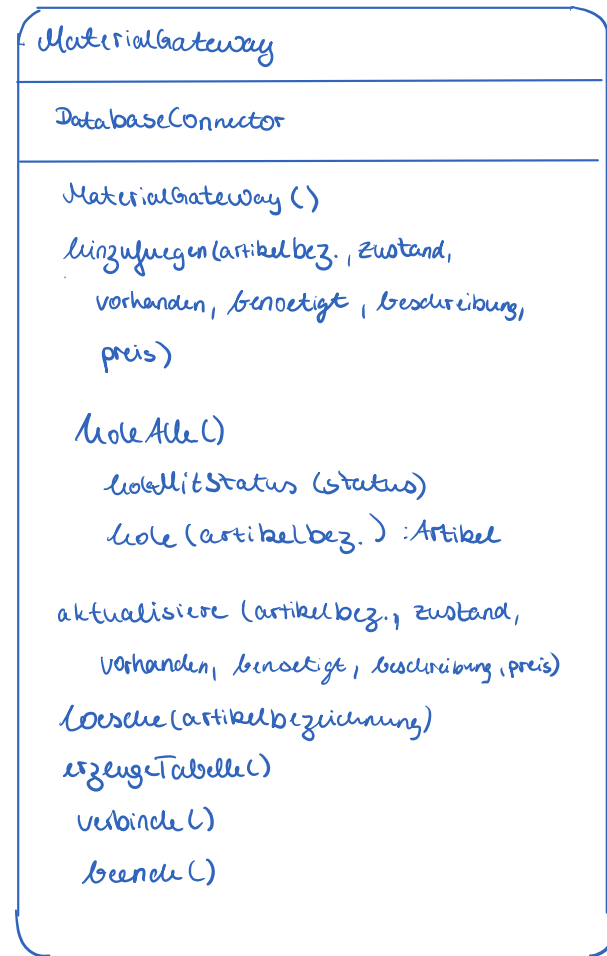 MaterialGateway
DatabaseConnector
MaterialGateway()
hinzufuegen(artikelbez., zustand,
vorhanden, benoetigt, beschreibung,
preis)
holeAlle()
holeMitStatus (status)
hole(artikelbez.) :Artikel
aktualisiere (artikelbez., zustand,
vorhanden, benoetigt, beschreibung, preis)
loesche(artikelbezeichnung)
erzeugeTabelle()
verbinde()
beende()